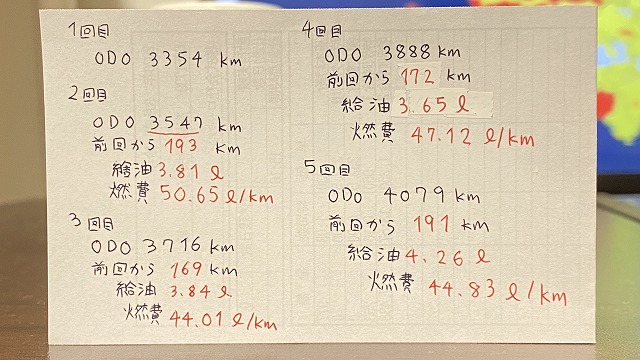 1回目
ODO 3354 km
2回目
ODO 3547 km
前回から 193 km
給油 3.81 ℓ
燃費 50.65 ℓ/km
3回目
ODO 3716 km
前回から 169 km
給油 3.84 ℓ
燃費 44.01 ℓ/km
4回目
ODO 3888 km
前回から 172 km
給油 3.65 ℓ
燃費 47.12 ℓ/km
5回目
ODO 4079 km
前回から 191 km
給油 4.26 ℓ
燃費 44.83 ℓ/km